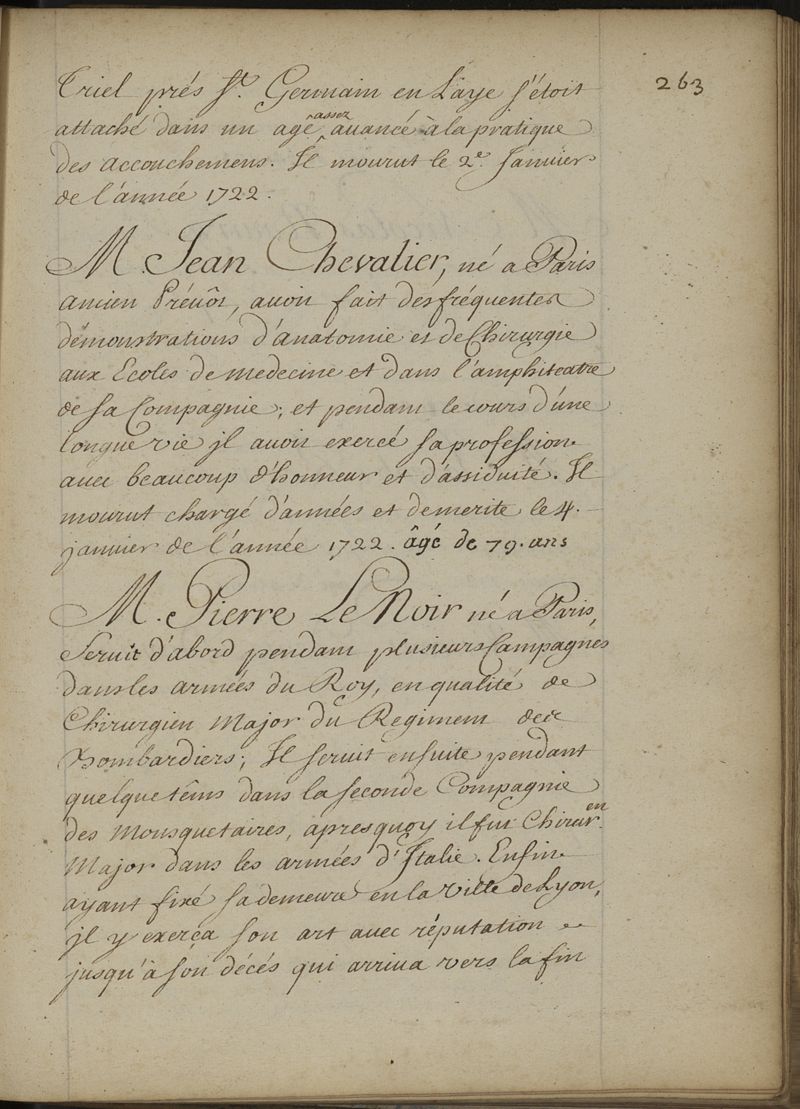 263
Triel prés St. Germain en Laye s'étoit
attaché dans un age assez auancé à la pratique
des accouchemens. Il mourut le 2e. Januier
de l'année 1722.
M. Jean Chevalier, né a Paris
ancien Préuôt, auoit fait des fréquentes
démonstrations d'anatomie et de Chirurgie
aux Ecoles de medecine et dans l'amphiteatre
de sa Compagnie; et pendant le cours d'une
longue vie jl auoit exercé sa profession
auec beaucoup d'honneur et d'assiduité. Il
mourut chargé d'années et de merite le 4.
januier de l'année 1722. âgé de 79. ans
M. Pierre Le Noir né a Paris,
seruit d'abord pendant plusieurs Campagnes
dans les armées du Roy, en qualité de
Chirurgien Major du Regiment des
Bombardiers; Il seruit ensuite pendant
quelque têms dans la seconde Compagnie
des Mousquetaires, apres quoy il fut Chirur.en
Major dans les armées d'Italie. Enfin
ayant fixé sa demeure en la Ville de Lyon,
jl y exerça son art auec réputation
jusqu'à son décés qui arriua vers la fin